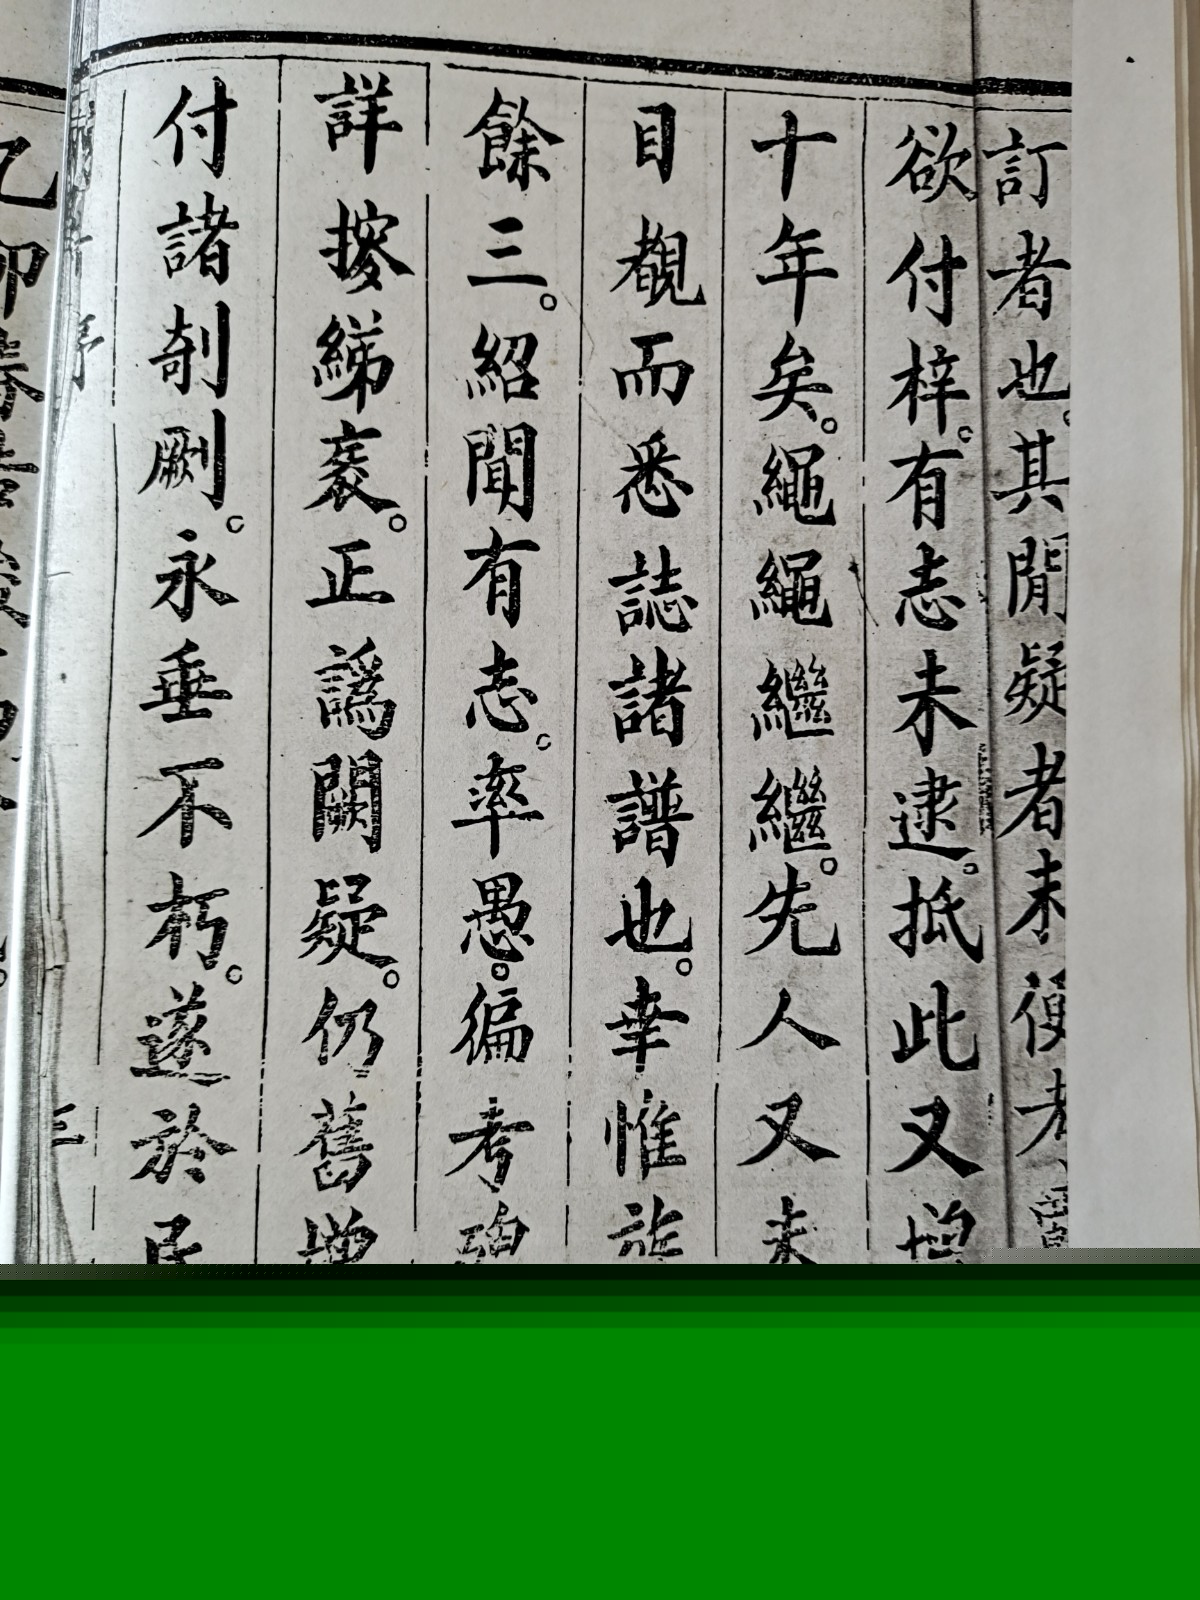 訂者也。其間疑者未便考
欲付梓。有志未逮。抵此又增
十年矣。繩繩繼繼。先人又未
目覩而悉誌諸譜也。幸惟
餘三。紹聞有志。率愚。徧考
詳披綈袠。正譌闕疑。仍舊
付諸剞劂。永垂不朽。遂於
序